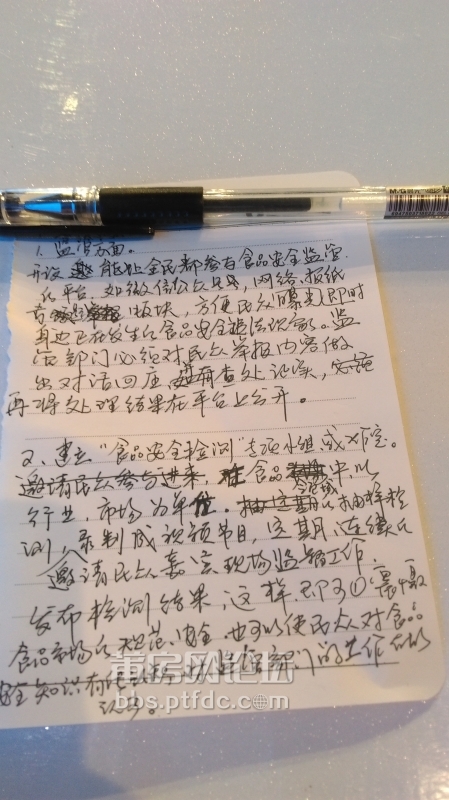 M&G
1. 监管方面。
开设能让全民都参与食品安全监管
的平台,如微信公众号,网络、报纸
专版块,方便民众曝光即时
身边正在发生的食品安全违法现象。监
管部门必须对民众举报内容做
出对话回应,查处记录,
再将处理结果在平台上公开。
2、建立“食品安全检测”专项小组或
邀请民众参与进来,食品中,以
行业、市场为单位。抽样检
测,录制成视频节目,定期、连续的
邀请民众现场监督工作,
发布检测结果,这样即可①震慑
食品市场的规范、安全,也可以使民众对食品
安全知识有,部门的工作有所
认可。
重房网论坛
bbs.ptfdc.com